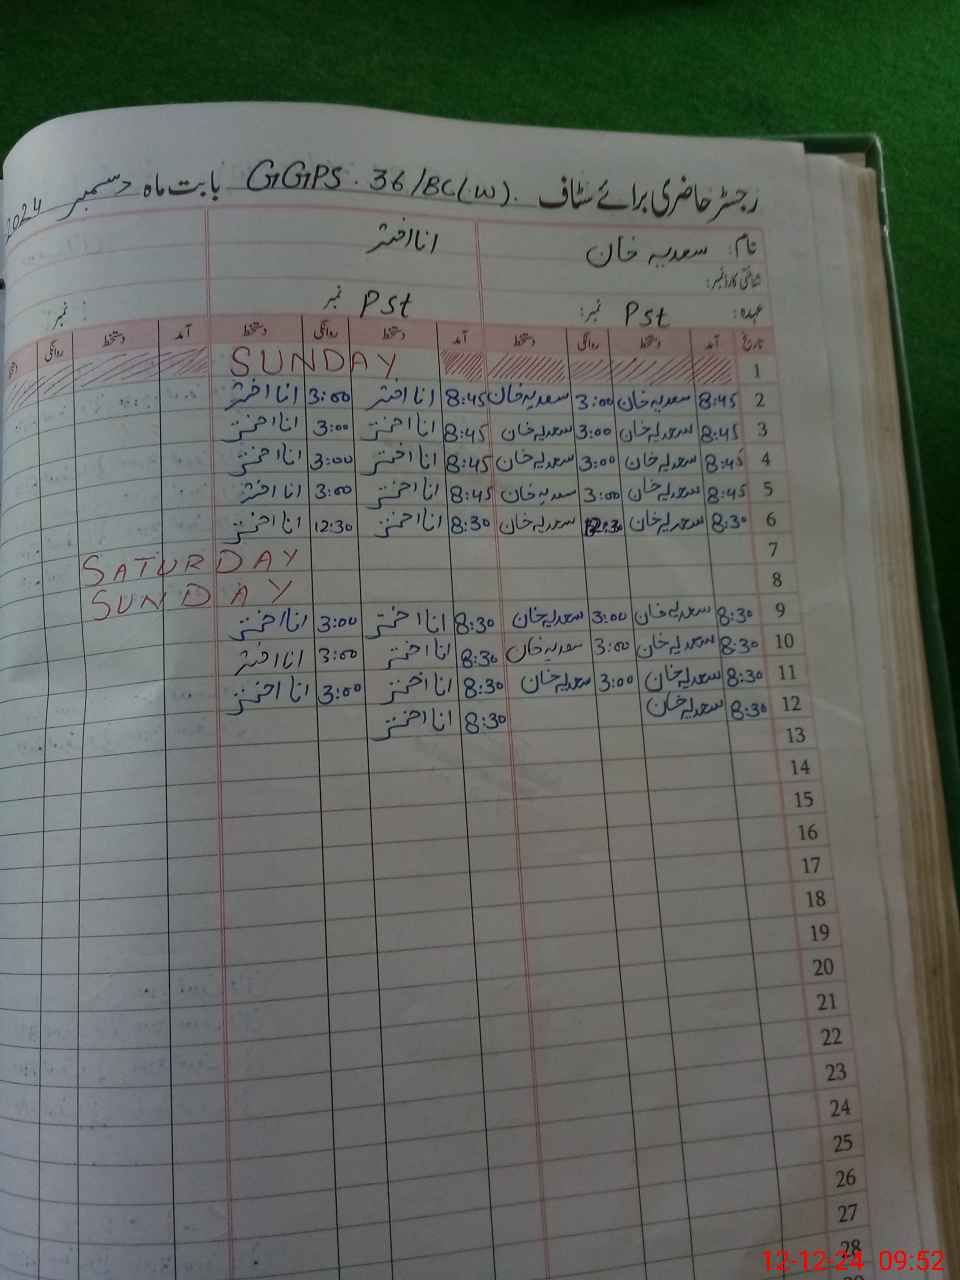 رجسٹر حاضری برائے سٹاف GGPS. 36/BC(W). بابت ماہ دسمبر 2024
نام: سعدیہ خان انا اختر
شناختی کارڈ نمبر:
عہدہ: Pst نمبر: Pst نمبر نمبر:
تاریخ آمد دستخط روانگی دستخط آمد دستخط روانگی دستخط آمد دستخط روانگی
1 SUNDAY
2 8:45 سعدیہ خان 3:00 سعدیہ خان 8:45 انا اختر 3:00 انا اختر
3 8:45 سعدیہ خان 3:00 سعدیہ خان 8:45 انا اختر 3:00 انا اختر
4 8:45 سعدیہ خان 3:00 سعدیہ خان 8:45 انا اختر 3:00 انا اختر
5 8:45 سعدیہ خان 3:00 سعدیہ خان 8:45 انا اختر 3:00 انا اختر
6 8:30 سعدیہ خان 12:30 سعدیہ خان 8:30 انا اختر 12:30 انا اختر
7 SATURDAY
8 SUNDAY
9 8:30 سعدیہ خان 3:00 سعدیہ خان 8:30 انا اختر 3:00 انا اختر
10 8:30 سعدیہ خان 3:00 سعدیہ خان 8:30 انا اختر 3:00 انا اختر
11 8:30 سعدیہ خان 3:00 سعدیہ خان 8:30 انا اختر 3:00 انا اختر
12 8:30 سعدیہ خان 8:30 انا اختر
13
14
15
16
17
18
19
20
21
22
23
24
25
26
27
28
12-12-24 09:52